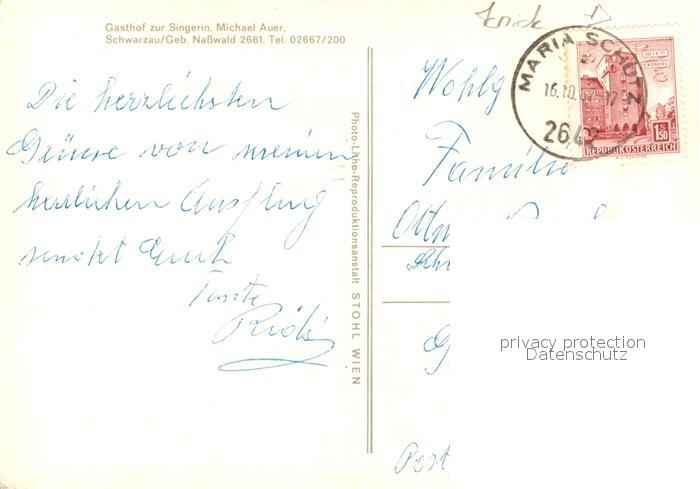 Gasthof zur Singerin, Michael Auer,
Schwarzau/Geb. Naßwald 2661, Tel. 02667/200
Die herzlichsten
Grüsse von meinem
herrlichen Ausflug
sendet Euch
Tante
Photo-Litho-Reproduktionsanstalt STOHL WIEN
MARIA SCHUTZ
16.10.
WIEN
ERDBERG
1.50
REPUBLIK ÖSTERREICH
Wohlg
Familie
Post
privacy protection
Datenschutz